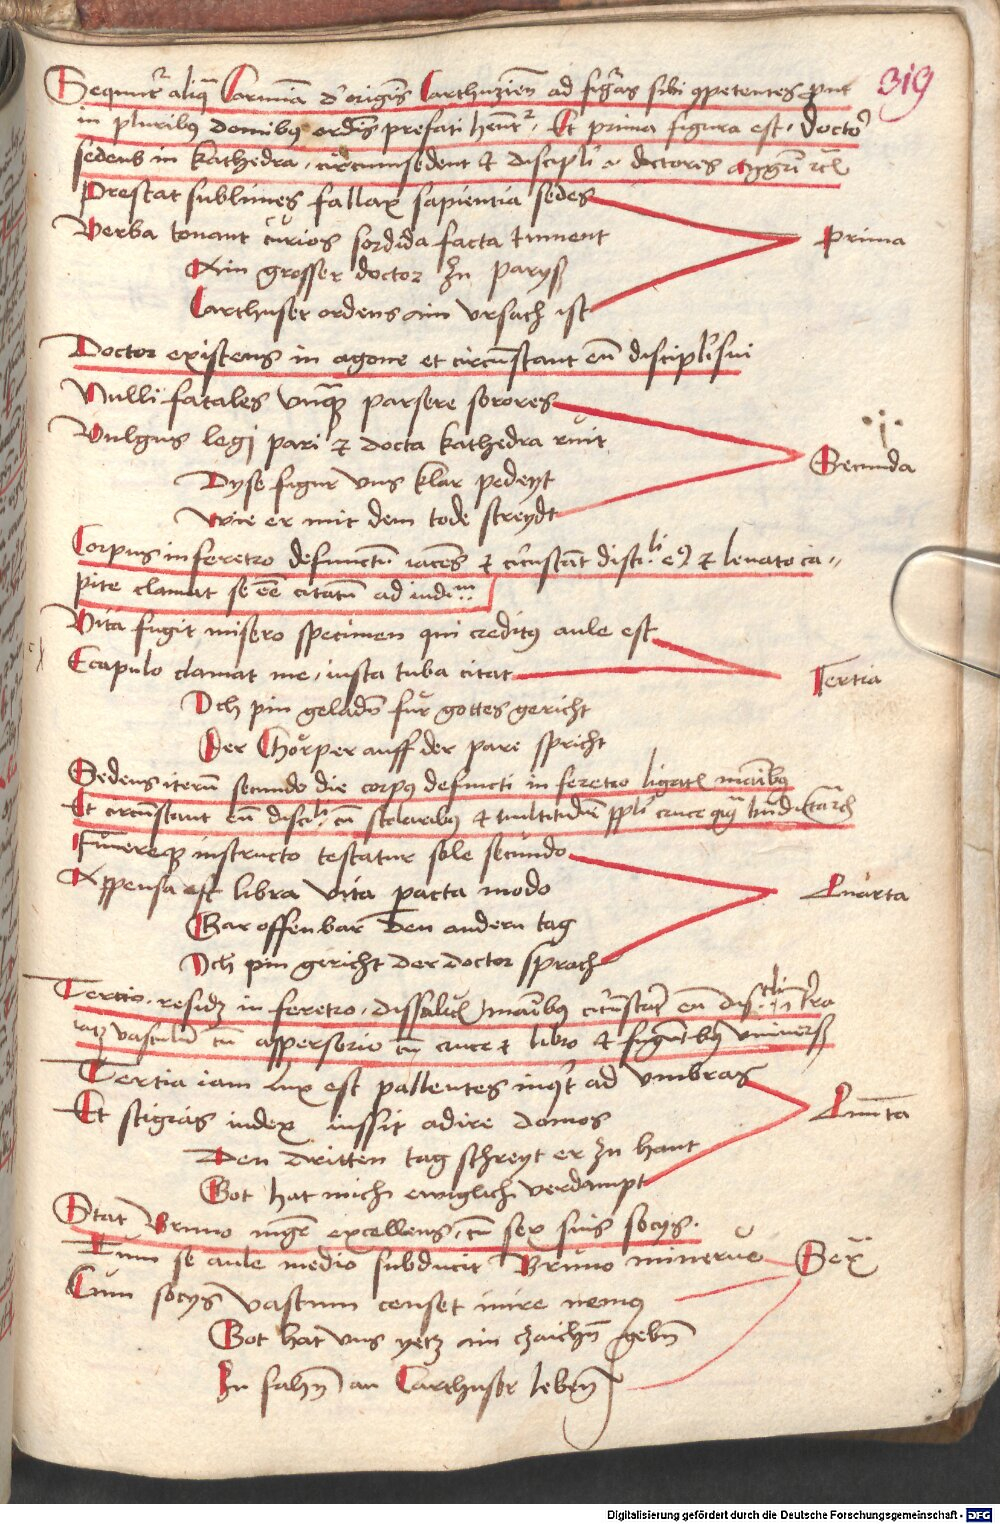 Sequntur aliqua Carmina de origine Carthuziensium ad figuras sibi competentes prout
in pluribus domibus ordinis prefati habentur. Et prima figura est. doctor
sedens in kathedra, circumsedent et discipuli et doctores
Prestat sublimes fallax sapientia sedes
Verba tonant curios sordida facta tument
Prima
Ain grosser doctor zu paryß
Carthuser ordens ain ursach ist
Doctor existens in agone et circumstant eum discipuli sui
Nulli fatales unquam parsere sorores
Vulgus legi pari et docta kathedra ruit
Secunda
Dyse figur uns klar pedeyt
wie er mit dem tode streydt
Corpus in feretro defuncti iacens et circumstant discipuli eius et levato ca-
pite clamat se esse citatum ad iudicium
Vita fugit misero specimen qui creditus aule est
Ecapulo clamat me, iusta tuba citat
Tertia
Ich pin geladen für gottes gericht
Der Chörper auff der pare spricht
Sedens iterum secundo die corpus defuncti in feretro ligatis manibus
Et circumstant eum discipuli cum scolaribus et multitudine populi cruce
Funereque instructo testatur sole secundo
Appensa est libra vita pacta modo
Quarta
Gar offenbar den andern tag
Ich pin gericht der doctor sprach
Tercio residet in feretro, dissolutis manibus circumstant eum discipuli
vasculum cum aspersorio cum cruce et libro et fugientibus universis
Tertia iam lux est pallentes inquit ad umbras
Et stigias iudex iussit adire domos
Quinta
Den dritten tag schreyt er zu hant
Got hat mich ewiglich verdampt
Stat Bruno magister excellens, cum sex suis socys.
Tum se aule medio subducit Bruno minerve
Sex
Cum socys vastum censet inire nemus
Got hat uns yetz ain zaichen geben
Zu fahen an Carthuser leben
319
Digitalisierung gefördert durch die Deutsche Forschungsgemeinschaft - DFG